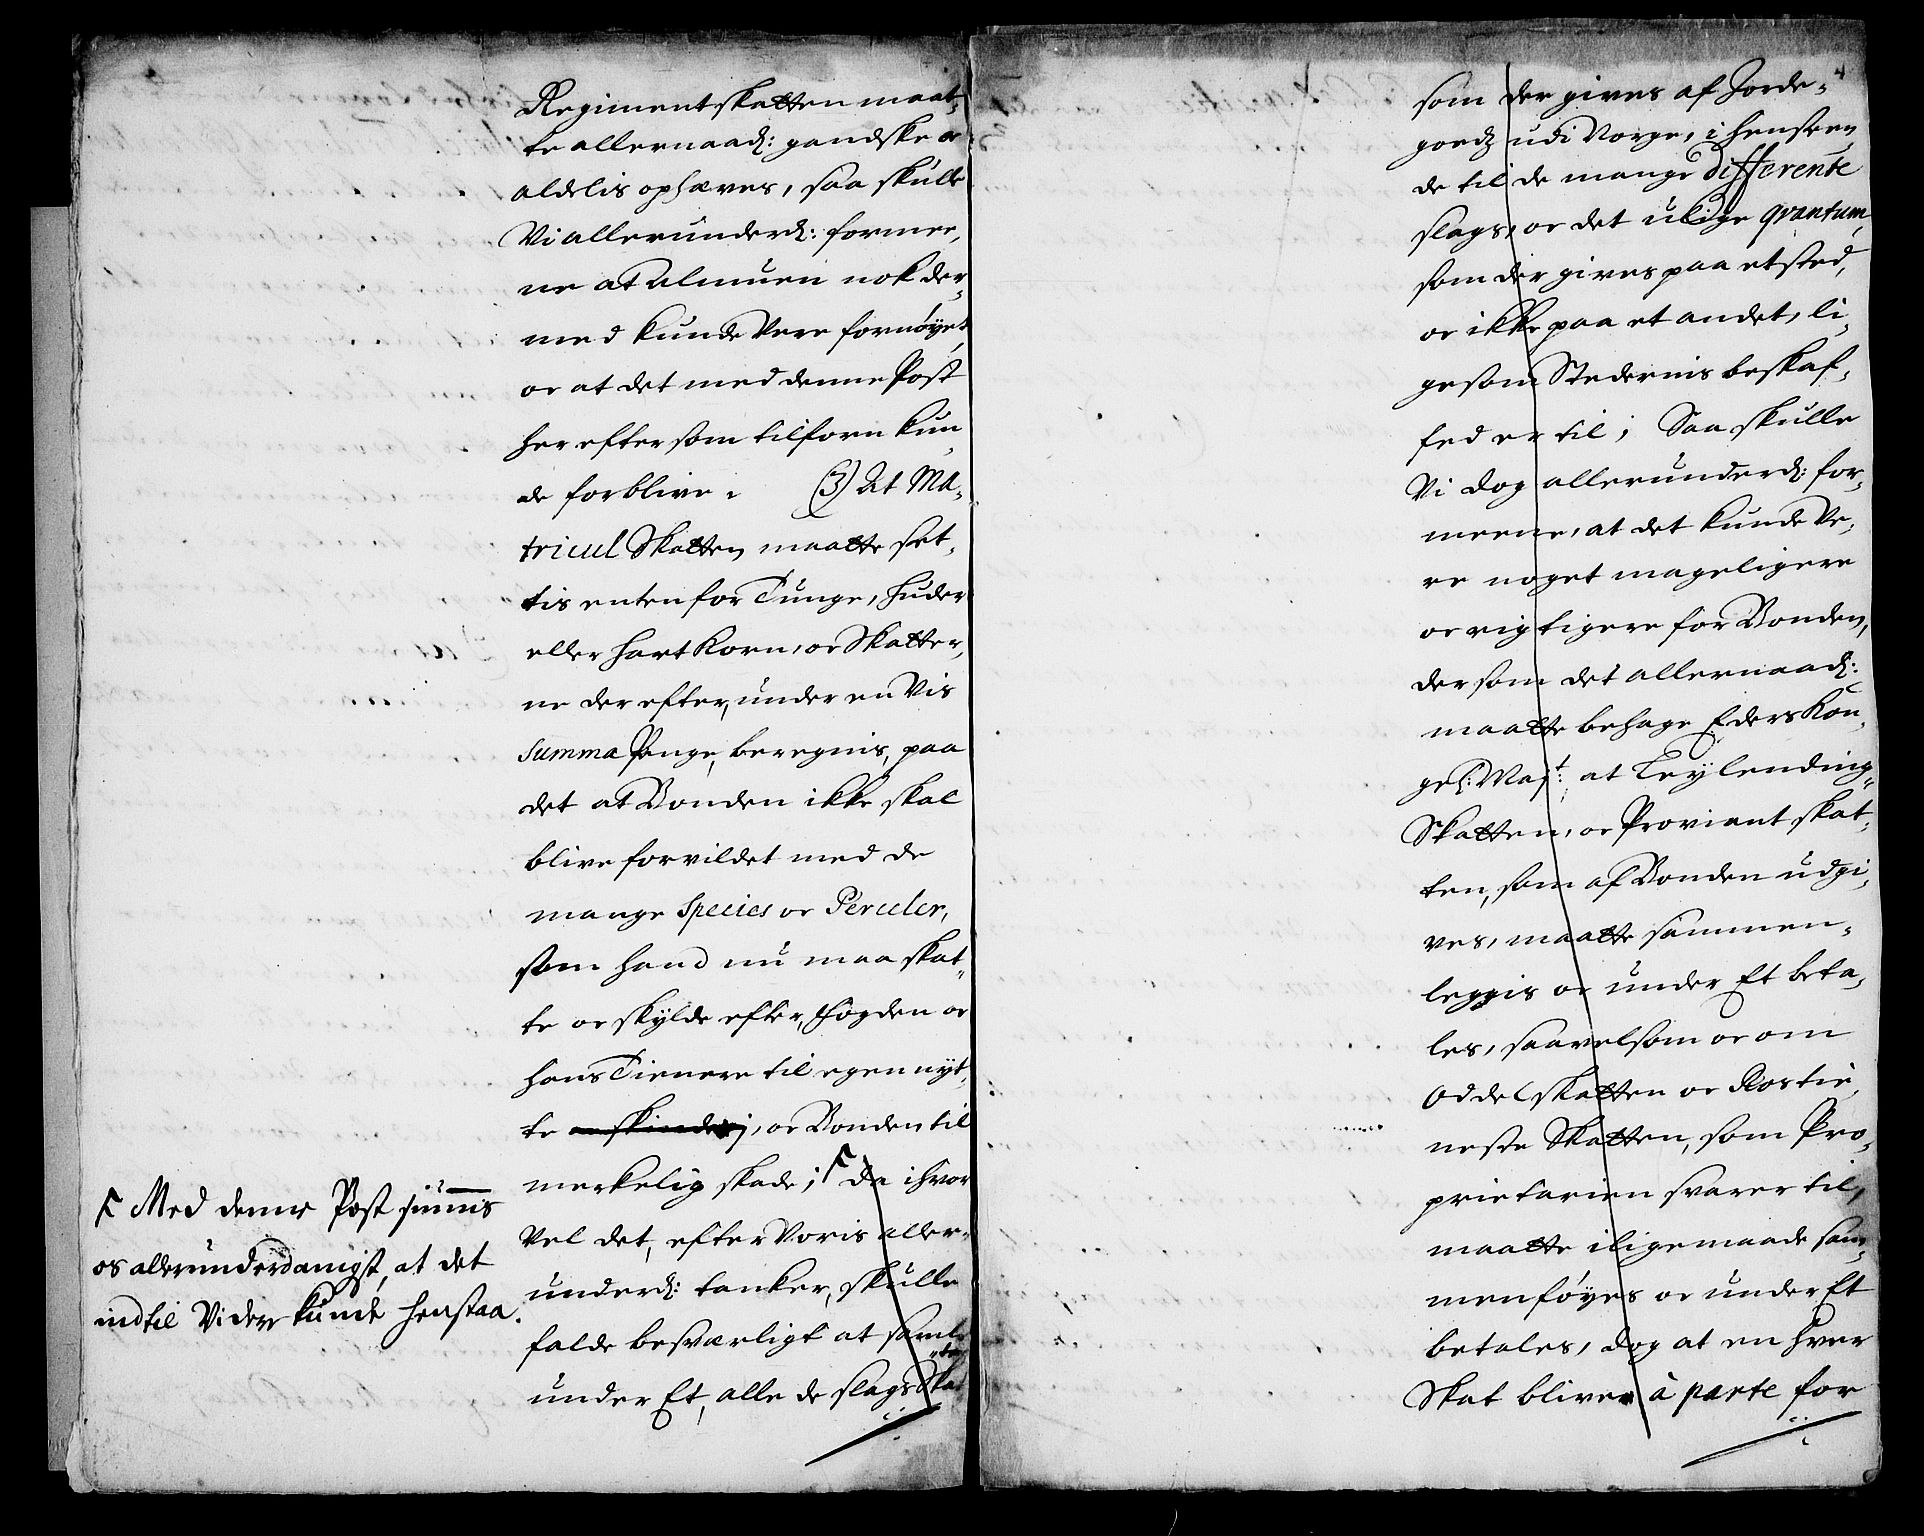 Regimentskatten maat-
te allernaad: gandske oc
aldelis ophæves, saa skulle
Vi allerunderd: formee,
ne at Almuen nok der-
med kunde Vere fornöyet,
oc at det med denne Post
her efter som tilforn kun
de forblive. (3) At Ma-
tricul Skatten maatte set-
tis enten for Tunge, huder
eller hart Korn, oc Skatter,
ne der efter, under en Vis
Summa Penge, beregnis, paa
det at Bonden ikke skal
blive forvildet med de
mange Species oc Perceler,
som hand nu maa skat-
te oc skylde efter, Fogden oc
hans Tienere til egen nyt-
te oc skinderj, oc Bonden til
merkelig skade; Da ihvor
Vel det, efter Voris aller-
underd: tanker, skulle
falde besværligt at samle
under Et, alle de slags Skat
ter
Med denne Post siunnis
os allerunderdanigst, at det
indtil Videre kunde henstaa.
4
som der gives af Jorde-
goedz udi Norge, i henseen
de til de mange differente
slags, oc det ulige qvantum,
som der gives paa et sted,
oc ikke paa et andet, li-
gesom Stedernis beskaf-
fed er til; Saa skulle
Vi dog allerunderd: for-
meene, at det kunde Ve-
re noget mageligere
oc rigtigere for Bonden,
dersom det allernaad:
maatte behage Eders Kon-
gel: Maj:t at Leylending-
Skatten, oc Proviant skat-
ten, som af Bonden udgi-
ves, maatte sammen-
leggis oc under Et beta-
les, saavelsom oc om
Oddelskatten oc Rostie
neste Skatten, som Pro-
prietarien svarer til,
maatte iligemaade sam-
menföyes oc under Et
betales, dog at en hver
Skat bliver à parte for